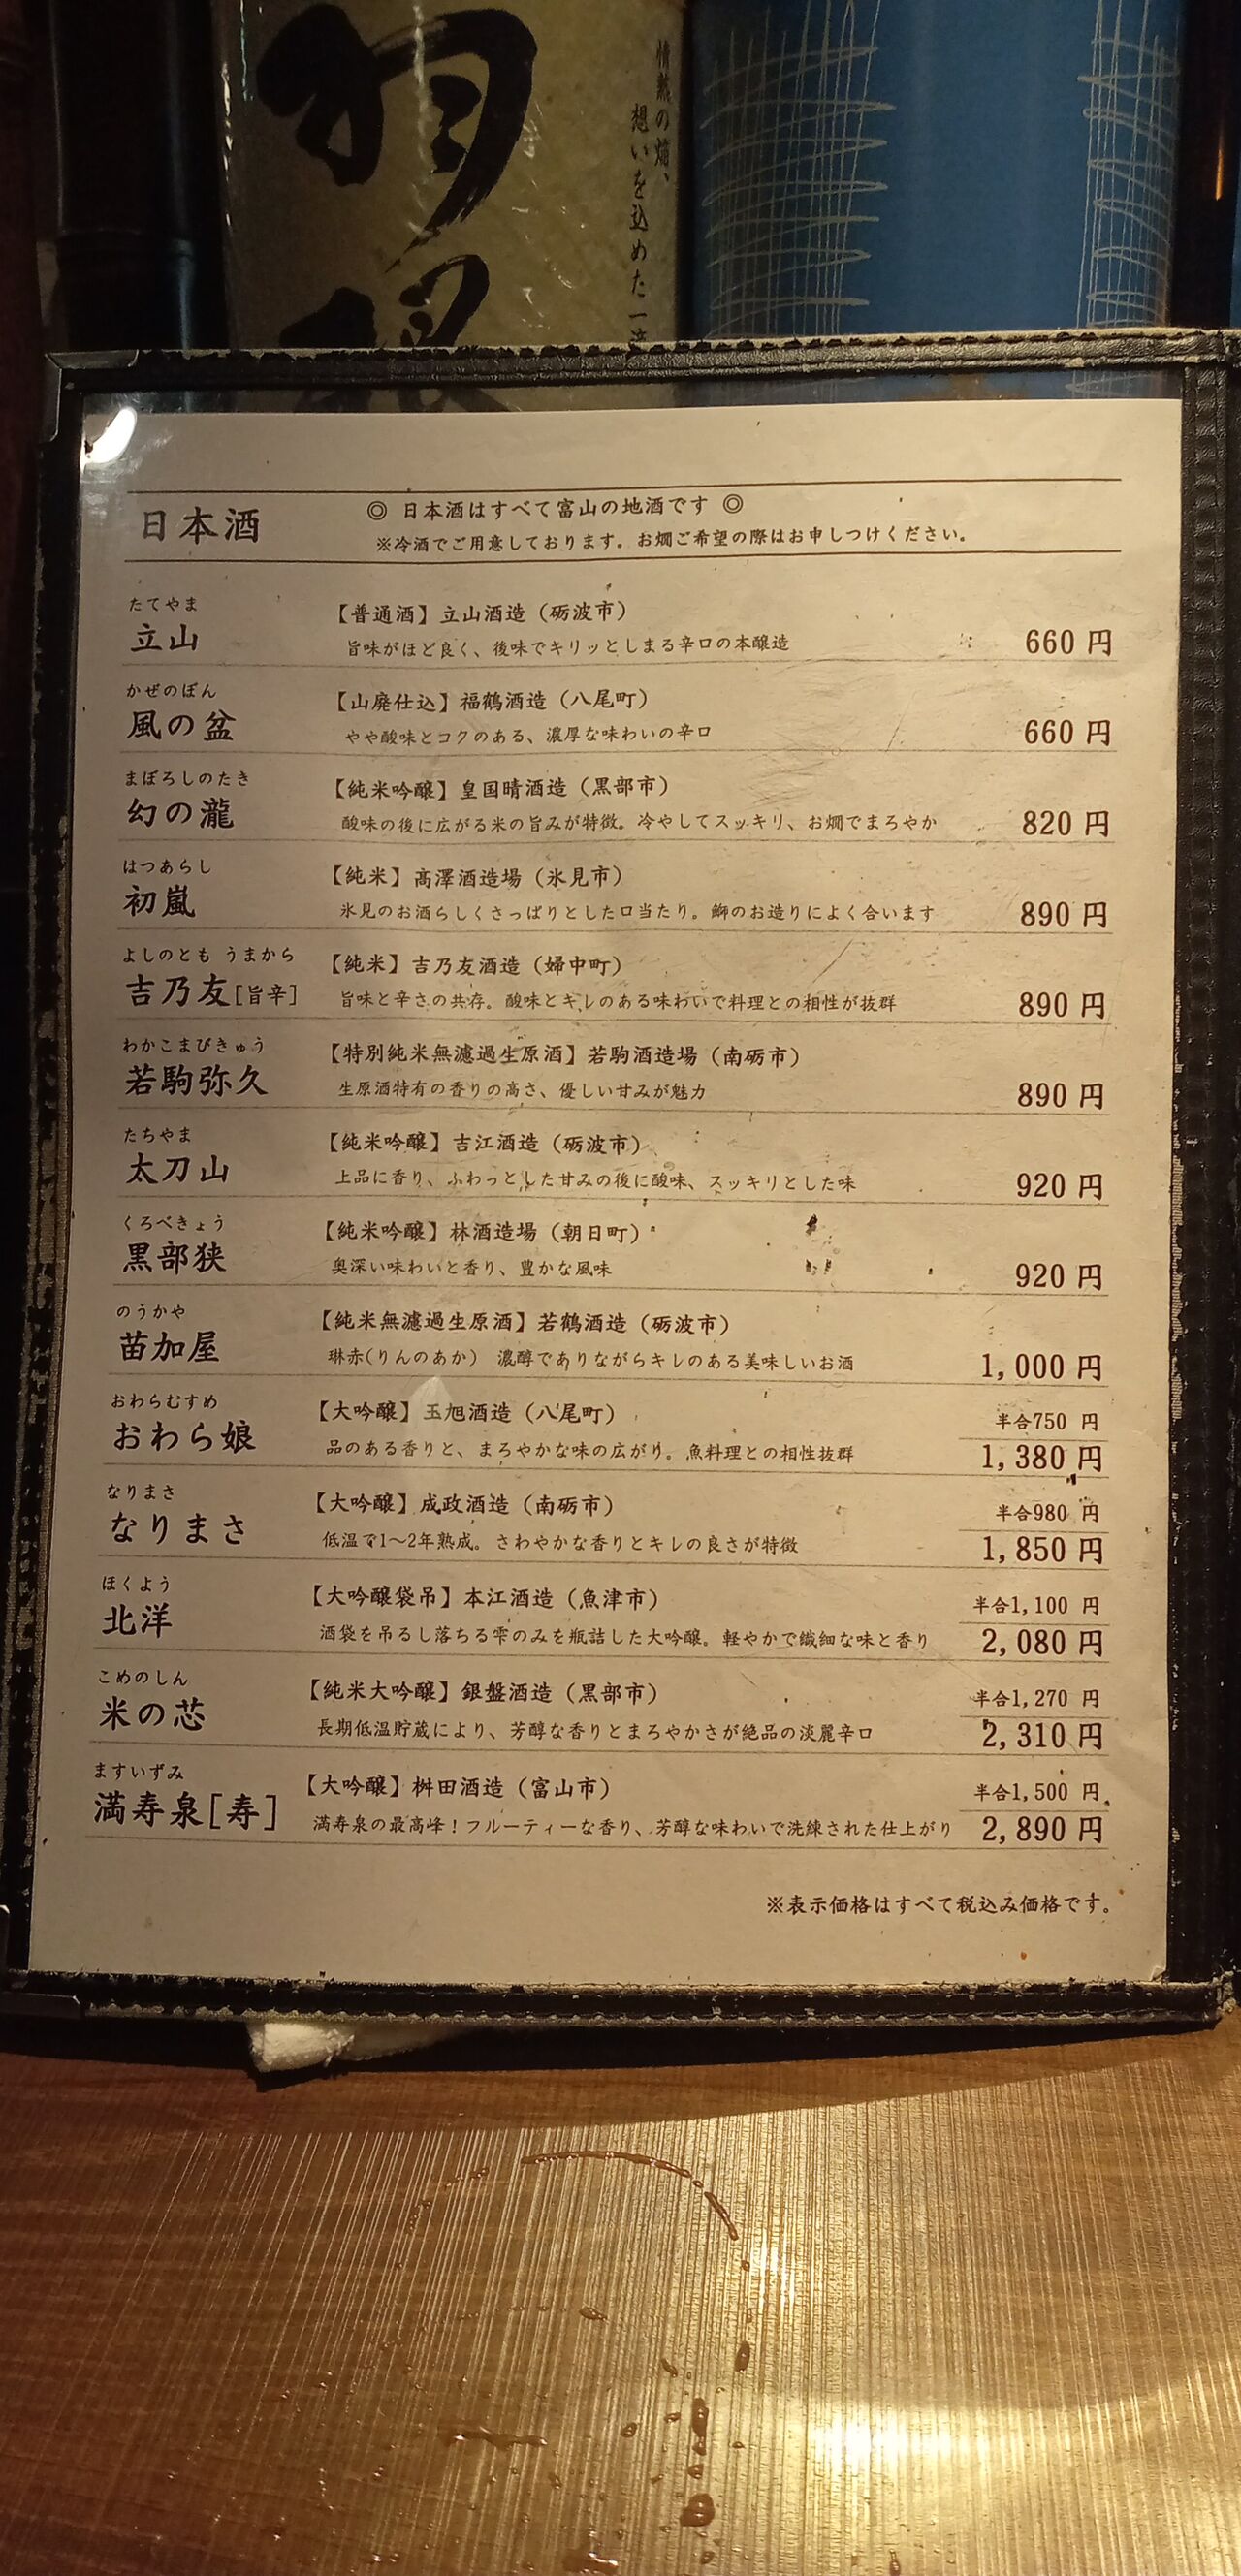 羽
情熱の焔、
想いを込めた一
日本酒
◎ 日本酒はすべて富山の地酒です ◎
※冷酒でご用意しております。お燗ご希望の際はお申しつけください。
たてやま
立山
【普通酒】立山酒造（砺波市）
旨味がほど良く、後味でキリッとしまる辛口の本醸造
660 円
かぜのぼん
風の盆
【山廃仕込】福鶴酒造（八尾町）
やや酸味とコクのある、濃厚な味わいの辛口
660 円
まぼろしのたき
幻の瀧
【純米吟醸】皇国晴酒造（黒部市）
酸味の後に広がる米の旨みが特徴。冷やしてスッキリ、お燗でまろやか
820 円
はつあらし
初嵐
【純米】髙澤酒造場（氷見市）
氷見のお酒らしくさっぱりとした口当たり。鰤のお造りによく合います
890 円
よしのとも うまから
吉乃友[旨辛]
【純米】吉乃友酒造（婦中町）
旨味と辛さの共存。酸味とキレのある味わいで料理との相性が抜群
890 円
わかこまびきゅう
若駒弥久
【特別純米無濾過生原酒】若駒酒造場（南砺市）
生原酒特有の香りの高さ、優しい甘みが魅力
890 円
たちやま
太刀山
【純米吟醸】吉江酒造（砺波市）
上品に香り、ふわっとした甘みの後に酸味、スッキリとした味
920 円
くろべきょう
黒部狭
【純米吟醸】林酒造場（朝日町）
奥深い味わいと香り、豊かな風味
920 円
のうかや
苗加屋
【純米無濾過生原酒】若鶴酒造（砺波市）
琳赤(りんのあか) 濃醇でありながらキレのある美味しいお酒
1,000 円
おわらむすめ
おわら娘
【大吟醸】玉旭酒造（八尾町）
品のある香りと、まろやかな味の広がり。魚料理との相性抜群
半合750 円
1,380 円
なりまさ
なりまさ
【大吟醸】成政酒造（南砺市）
低温で1～2年熟成。さわやかな香りとキレの良さが特徴
半合980 円
1,850 円
ほくよう
北洋
【大吟醸袋吊】本江酒造（魚津市）
酒袋を吊るし落ちる雫のみを瓶詰した大吟醸。軽やかで繊細な味と香り
半合1,100 円
2,080 円
こめのしん
米の芯
【純米大吟醸】銀盤酒造（黒部市）
長期低温貯蔵により、芳醇な香りとまろやかさが絶品の淡麗辛口
半合1,270 円
2,310 円
ますいずみ
満寿泉[寿]
【大吟醸】桝田酒造（富山市）
満寿泉の最高峰！フルーティーな香り、芳醇な味わいで洗練された仕上がり
半合1,500 円
2,890 円
※表示価格はすべて税込み価格です。